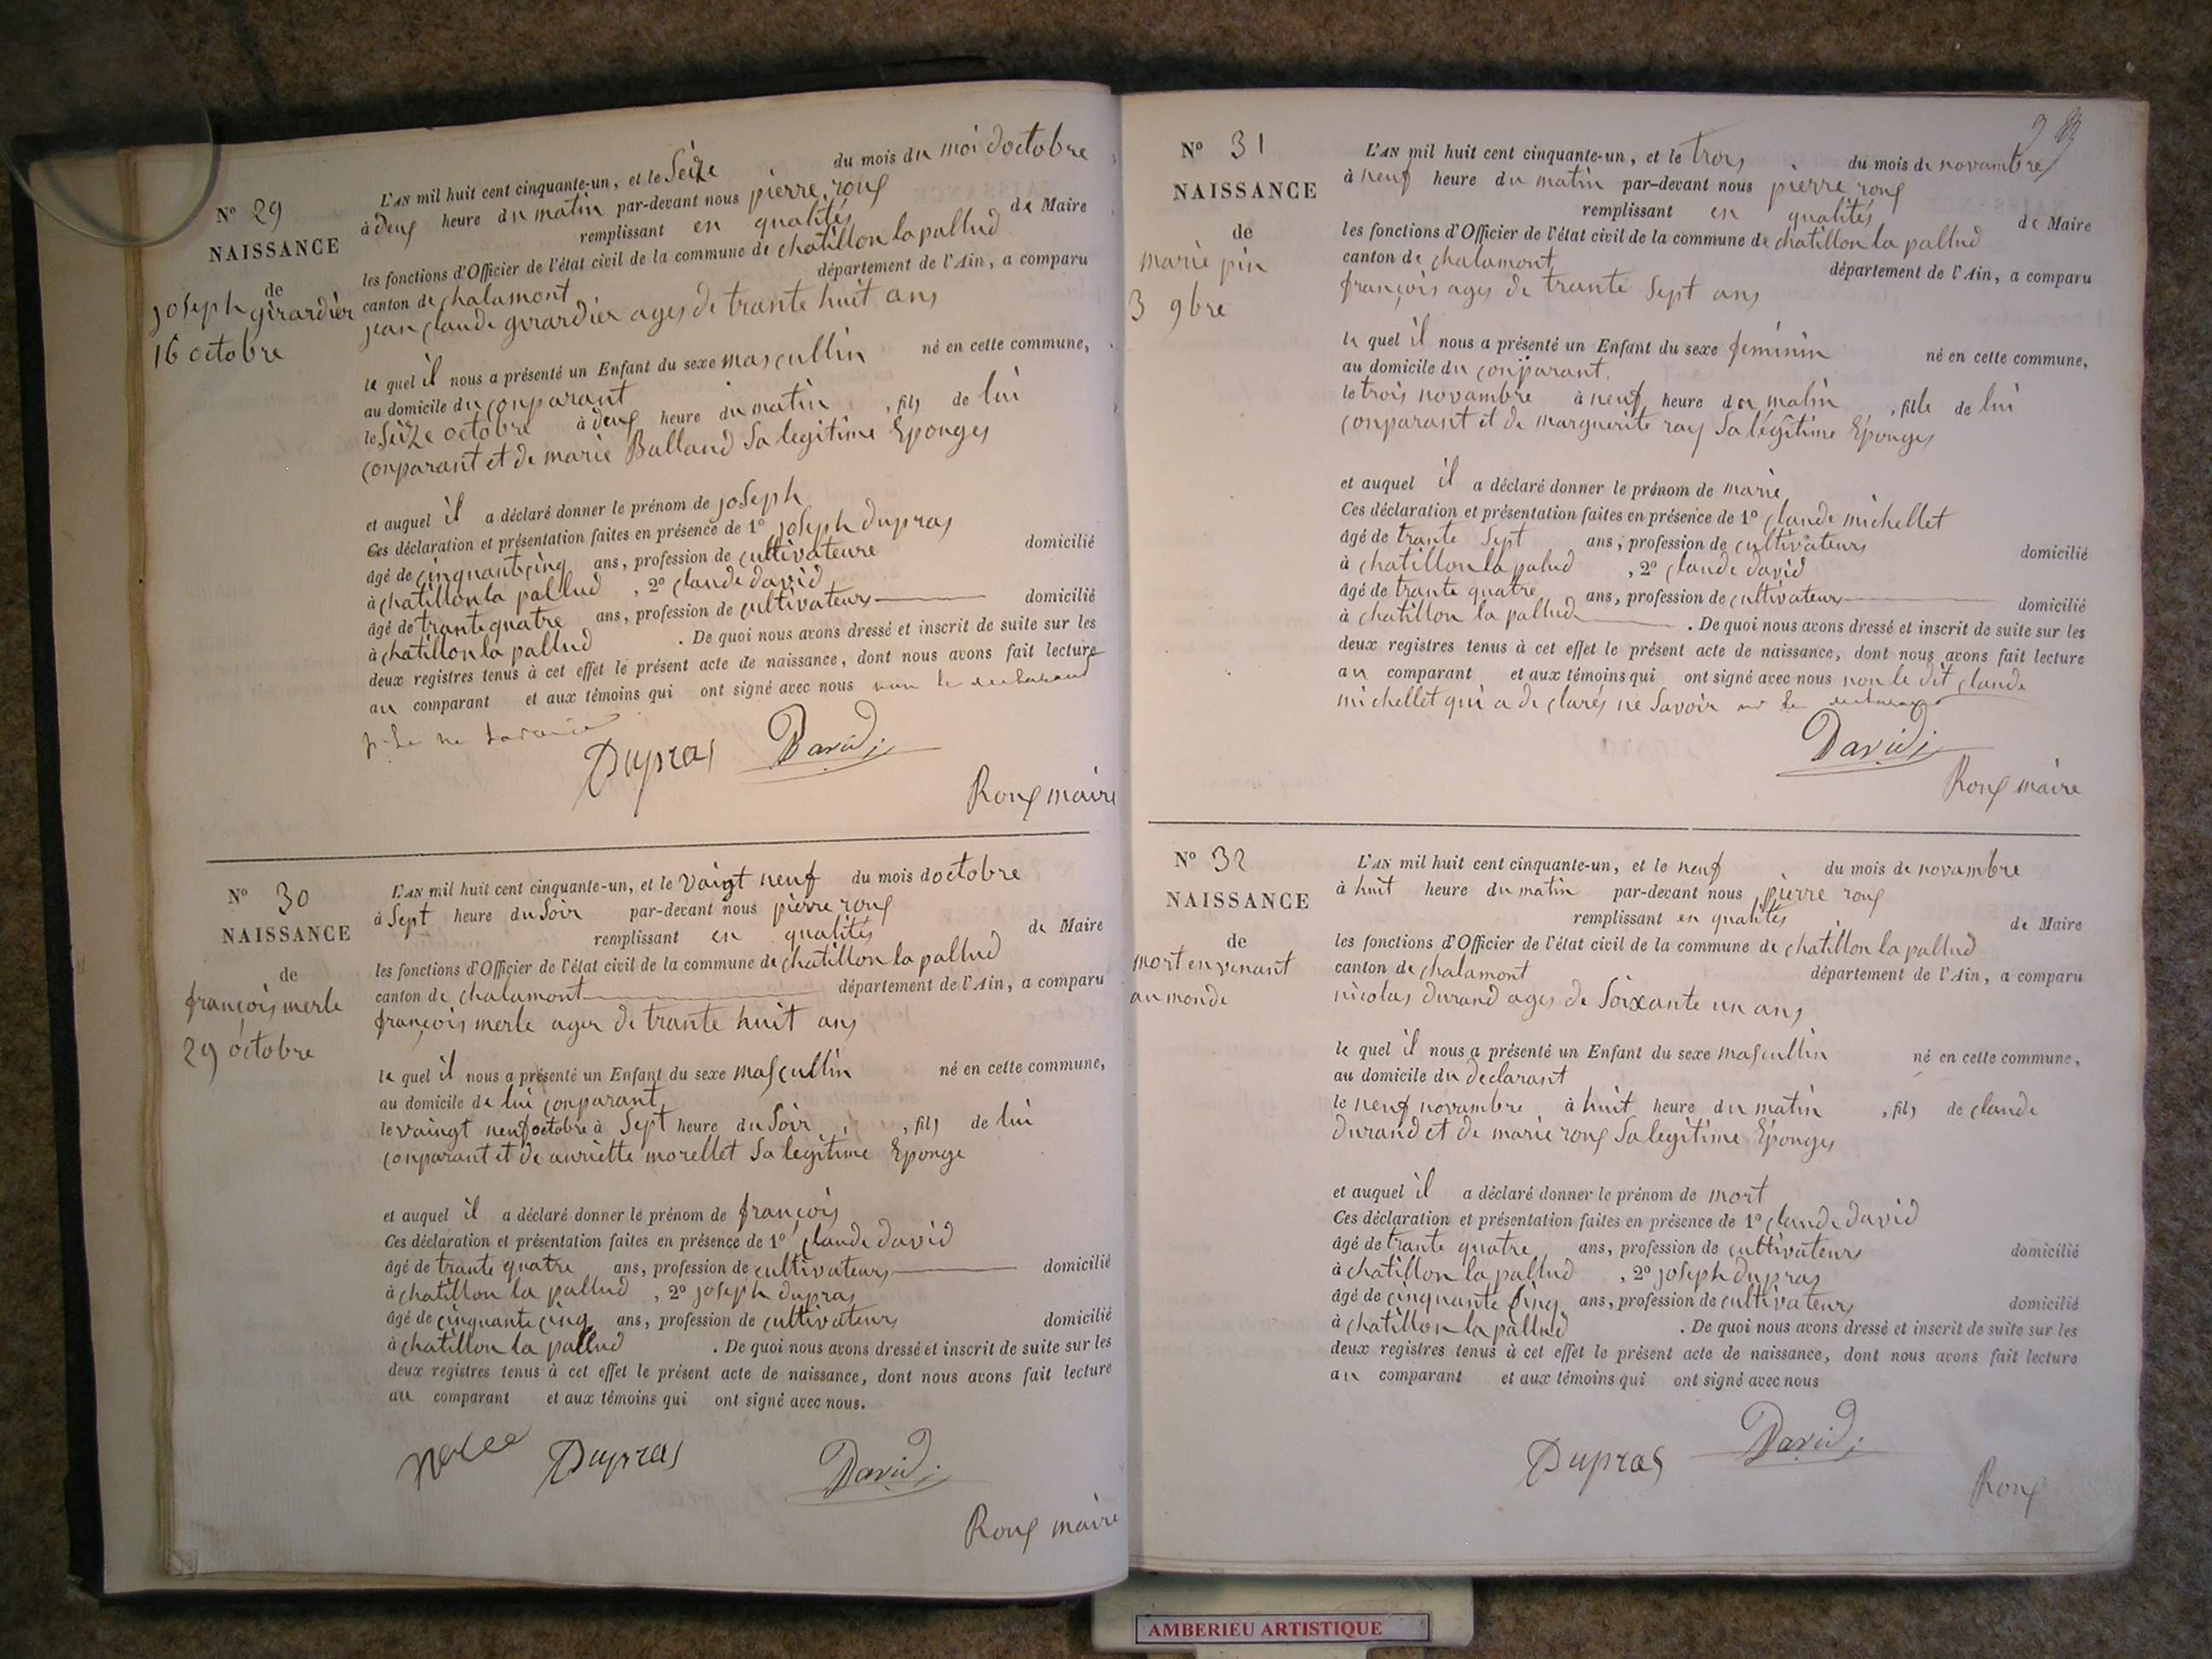 N° 29
NAISSANCE
de
joseph girardier
16 octobre
L'AN mil huit cent cinquante-un, et le Seize du mois du moi doctobre
à deux heure du matin par-devant nous pierre roux
remplissant en qualités de Maire
les fonctions d'Officier de l'état civil de la commune de chatillon la pallud
canton de chalamont département de l'Ain, a comparu
jean claude girardier ages de trante huit ans
le quel il nous a présenté un Enfant du sexe mascullin né en cette commune,
au domicile du conparant
le Seize octobre à deux heure du matin, fils de lui
conparant et de marie Balland Sa legitime Epouges
et auquel il a déclaré donner le prénom de joseph
Ces déclaration et présentation faites en présence de 1° joseph dupras
âgé de cinquante cinq ans, profession de cultivateure domicilié
à chatillon la pallud, 2° claude david
âgé de trante quatre ans, profession de cultivateurs domicilié
à chatillon la pallud. De quoi nous avons dressé et inscrit de suite sur les
deux registres tenus à cet effet le présent acte de naissance, dont nous avons fait lecture
au comparant et aux témoins qui ont signé avec nous
Dupras David
Roux maire
N° 30
NAISSANCE
de
françois merle
29 octobre
L'AN mil huit cent cinquante-un, et le vaingt neuf du mois doctobre
à Sept heure du Soir par-devant nous pierre roux
remplissant en qualités de Maire
les fonctions d'Officier de l'état civil de la commune de chatillon la pallud
canton de chalamont département de l'Ain, a comparu
françois merle ager de trante huit ans
le quel il nous a présenté un Enfant du sexe mascullin né en cette commune,
au domicile de lui conparant
le vaingt neuf octobre à Sept heure du Soir, fils de lui
conparant et de auriette morellet Sa legitime Epouge
et auquel il a déclaré donner le prénom de françois
Ces déclaration et présentation faites en présence de 1° claude david
âgé de trante quatre ans, profession de cultivateurs domicilié
à chatillon la pallud, 2° joseph dupras
âgé de cinquante cinq ans, profession de cultivateurs domicilié
à chatillon la pallud. De quoi nous avons dressé et inscrit de suite sur les
deux registres tenus à cet effet le présent acte de naissance, dont nous avons fait lecture
au comparant et aux témoins qui ont signé avec nous.
Dupras David
Roux maire
N° 31
NAISSANCE
de
marie pin
3 9bre
L'AN mil huit cent cinquante-un, et le trois du mois de novambre
à neuf heure du matin par-devant nous pierre roux
remplissant en qualités de Maire
les fonctions d'Officier de l'état civil de la commune de chatillon la pallud
canton de chalamont département de l'Ain, a comparu
françois ages de trante Sept ans
le quel il nous a présenté un Enfant du sexe feminin né en cette commune,
au domicile du conparant.
le trois novambre à neuf heure du matin, fille de lui
conparant et de marguerite ray Sa légitime Epouges
et auquel il a déclaré donner le prénom de marie
Ces déclaration et présentation faites en présence de 1° claude michellet
âgé de trante Sept ans, profession de cultivateurs domicilié
à chatillon la palud, 2° claude david
âgé de trante quatre ans, profession de cultivateurs domicilié
à chatillon la pallud. De quoi nous avons dressé et inscrit de suite sur les
deux registres tenus à cet effet le présent acte de naissance, dont nous avons fait lecture
au comparant et aux témoins qui ont signé avec nous non le dit claude
michellet qui a de clarés ne Savoir
David
Roux maire
N° 32
NAISSANCE
de
mort en venant
au monde
L'AN mil huit cent cinquante-un, et le neuf du mois de novambre
à huit heure du matin par-devant nous pierre roux
remplissant en qualités de Maire
les fonctions d'Officier de l'état civil de la commune de chatillon la pallud
canton de chalamont département de l'Ain, a comparu
nicolas durand ages de Soixante un ans
le quel il nous a présenté un Enfant du sexe mascullin né en cette commune,
au domicile du declarant
le neuf novambre à huit heure du matin, fils de claude
durand et de marie roux Sa legitime Epouges
et auquel il a déclaré donner le prénom de mort
Ces déclaration et présentation faites en présence de 1° claude david
âgé de trante quatre ans, profession de cultivateurs domicilié
à chatillon la pallud, 2° joseph dupras
âgé de cinquante cinq ans, profession de cultivateurs domicilié
à chatillon la pallud. De quoi nous avons dressé et inscrit de suite sur les
deux registres tenus à cet effet le présent acte de naissance, dont nous avons fait lecture
au comparant et aux témoins qui ont signé avec nous
Dupras David
Roux
AMBERIEU ARTISTIQUE